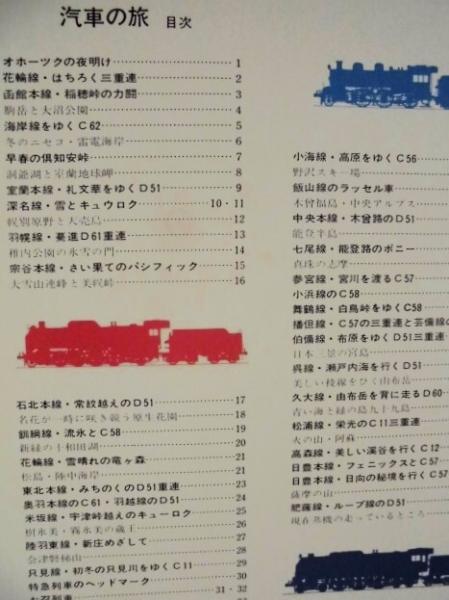 汽車の旅 目次
オホーツクの夜明け 1
花輪線・はちろく三重連 2
函館本線・稲穂峠の力闘 3
駒岳と大沼公園 4
海岸線をゆくC62 5
冬のニセコ・雷電海岸 6
早春の倶知安峠 7
洞爺湖と室蘭地球岬 8
室蘭本線・礼文華をゆくD51 9
深名線・雪とキュウロク 10・11
幌別原野と天売島 12
羽幌線・驀進D61重連 13
稚内公園の氷雪の門 14
宗谷本線・さい果てのパシフィック 15
大雪山連峰と美瑛峠 16
石北本線・常紋越えのD51 17
名花が一時に咲き競う原生花園 18
釧網線・流氷とC58 19
新緑の十和田湖 20
花輪線・雪晴れの竜ヶ森 21
松島・陸中海岸 22
東北本線・みちのくのD51重連 23
奥羽本線のC61・羽越線のD51 24
米坂線・宇津峠越えのキューロク 25
樹氷美・霧氷美の蔵王 26
陸羽東線・新庄めざして 27
会津磐梯山 28
只見線・初冬の只見川をゆくC11 29
特急列車のヘッドマーク 30
お召列車 31・32
小海線・高原をゆくC56
野沢スキー場
飯山線のラッセル車
木曾福島・中央アルプス
中央本線・木曾路のD51
能登半島
七尾線・能登路のポニー
真珠の志摩
参宮線・宮川を渡るC57
小浜線のC58
舞鶴線・白鳥峠をゆくC58
播但線・C57の三重連と芸備線の
伯備線・布原をゆくD51三重連
日本三景の宮島
呉線・瀬戸内海を行くD51
美しい稜線をひく由布岳
久大線・由布岳を背に走るD60
青い海と緑の島九十九島
松浦線・栄光のC11三重連
火の山・阿蘇
高森線・美しい渓谷を行くC12
日豊本線・フェニックスとC57
日豊本線・日向の秘境を行くC57
薩摩の山
肥薩線・ループ線のD51
現在蒸機の走っているところ